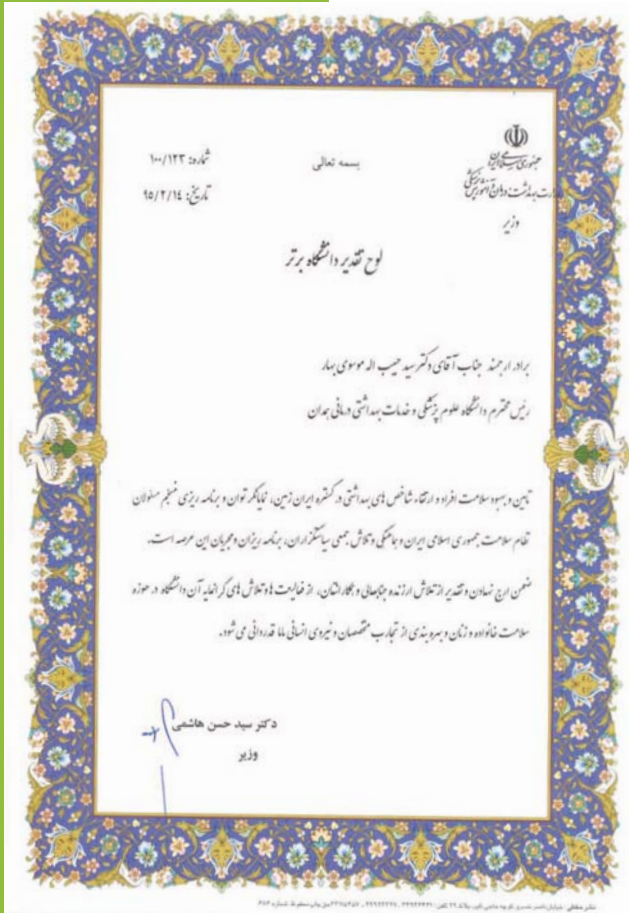 بسمه تعالی
جمهوری اسلامی ایران
وزارت بهداشت، درمان و آموزش پزشکی
وزیر
شماره: ۱۰۰/۱۲۳
تاریخ: ۹۵/۲/۱۴
لوح تقدیر دانشگاه برتر
برادر ارجمند جناب آقای دکتر سید حبیب اله موسوی بهار
رئیس محترم دانشگاه علوم پزشکی و خدمات بهداشتی درمانی همدان
تامین و بهبود سلامت افراد و ارتقاء شاخص های بهداشتی در گستره ایران زمین، نمایانگر توان و برنامه ریزی منسجم مسئولان
نظام سلامت جمهوری اسلامی ایران و هماهنگی و تلاش جمعی سیاستگزاران، برنامه ریزان و مجریان این عرصه است.
ضمن ارج نهادن و تقدیر از تلاش ارزنده جنابعالی و همکارانتان، از فعالیت ها و تلاش های گرانمایه آن دانشگاه در حوزه
سلامت خانواده و زنان و بهره بندی از تجارب متخصصان و نیروی انسانی ماما قدردانی می شود.
دکتر سید حسن هاشمی
وزیر